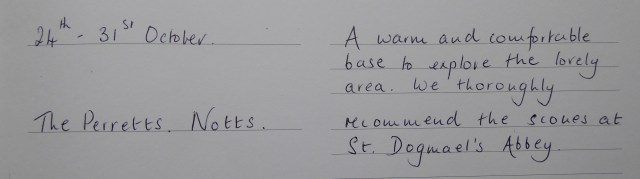 24th - 31st October.
The Perretts. Notts.
A warm and comfortable
base to explore the lovely
area. We thoroughly
recommend the scones at
St. Dogmael's Abbey.